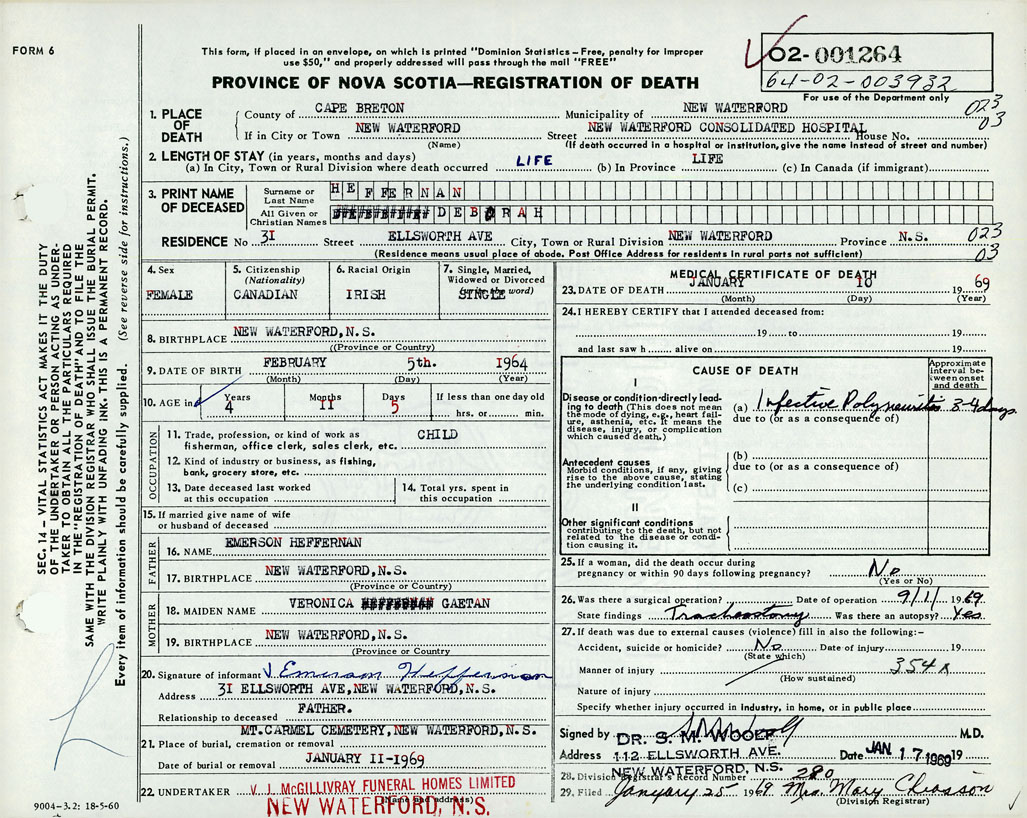 FORM 6
This form, if placed in an envelope, on which is printed "Dominion Statistics – Free, penalty for improper
use $50," and properly addressed will pass through the mail "FREE"
PROVINCE OF NOVA SCOTIA—REGISTRATION OF DEATH
02-001264
64-02-003932
For use of the Department only
SEC. 14 – VITAL STATISTICS ACT MAKES IT THE DUTY
OF THE UNDERTAKER OR PERSON ACTING AS UNDER-
TAKER TO OBTAIN ALL THE PARTICULARS REQUIRED
IN THE "REGISTRATION OF DEATH" AND TO FILE THE
SAME WITH THE DIVISION REGISTRAR WHO SHALL ISSUE THE BURIAL PERMIT.
WRITE PLAINLY WITH UNFADING INK. THIS IS A PERMANENT RECORD.
Every item of information should be carefully supplied. (See reverse side for instructions.)
1. PLACE OF DEATH
County of CAPE BRETON Municipality of NEW WATERFORD 023
If in City or Town NEW WATERFORD Street NEW WATERFORD CONSOLIDATED HOSPITAL House No. 03
(Name) (If death occurred in a hospital or institution, give the name instead of street and number)
2. LENGTH OF STAY (in years, months and days)
(a) In City, Town or Rural Division where death occurred LIFE (b) In Province LIFE (c) In Canada (if immigrant)
3. PRINT NAME OF DECEASED
Surname or Last Name HEFFERNAN
All Given or Christian Names DEBORAH
RESIDENCE No 31 Street ELLSWORTH AVE City, Town or Rural Division NEW WATERFORD Province N.S. 023
(Residence means usual place of abode. Post Office Address for residents in rural parts not sufficient) 03
4. Sex
FEMALE
5. Citizenship (Nationality)
CANADIAN
6. Racial Origin
IRISH
7. Single, Married, Widowed or Divorced (write the word)
SINGLE
8. BIRTHPLACE NEW WATERFORD, N.S.
(Province or Country)
9. DATE OF BIRTH FEBRUARY 5th. 1964
(Month) (Day) (Year)
10. AGE in Years Months Days If less than one day old
4 11 5 hrs. or min.
OCCUPATION
11. Trade, profession, or kind of work as CHILD
fisherman, office clerk, sales clerk, etc.
12. Kind of industry or business, as fishing,
bank, grocery store, etc.
13. Date deceased last worked
at this occupation
14. Total yrs. spent in
this occupation
15. If married give name of wife
or husband of deceased
FATHER
16. NAME EMERSON HEFFERNAN
17. BIRTHPLACE NEW WATERFORD, N.S.
(Province or Country)
MOTHER
18. MAIDEN NAME VERONICA GAETAN
19. BIRTHPLACE NEW WATERFORD, N.S.
(Province or Country)
20. Signature of informant V. Emerson Heffernan
Address 31 ELLSWORTH AVE, NEW WATERFORD, N.S.
Relationship to deceased FATHER.
MT. CARMEL CEMETERY, NEW WATERFORD, N.S.
21. Place of burial, cremation or removal
Date of burial or removal JANUARY 11-1969
22. UNDERTAKER V. J. McGILLIVRAY FUNERAL HOMES LIMITED
(Name and address)
NEW WATERFORD, N.S.
9004-3.2: 18-5-60
MEDICAL CERTIFICATE OF DEATH
23. DATE OF DEATH JANUARY 10 19 69
(Month) (Day) (Year)
24. I HEREBY CERTIFY that I attended deceased from:
19 to 19
and last saw h alive on 19
CAUSE OF DEATH
Approximate interval between onset and death
I
Disease or condition directly lead-
ing to death (This does not mean
the mode of dying, e.g., heart fail-
ure, asthenia, etc. It means the
disease, injury, or complication
which caused death.)
(a) Infective Polyneuritis 3-4 days
due to (or as a consequence of)
Antecedent causes
Morbid conditions, if any, giving
rise to the above cause, stating
the underlying condition last.
(b)
due to (or as a consequence of)
(c)
II
Other significant conditions
contributing to the death, but not
related to the disease or condi-
tion causing it.
25. If a woman, did the death occur during
pregnancy or within 90 days following pregnancy? No
(Yes or No)
26. Was there a surgical operation? Date of operation 9/1/ 1969
State findings Tracheostomy Was there an autopsy? Yes
27. If death was due to external causes (violence) fill in also the following:–
Accident, suicide or homicide? No Date of injury 19
(State which)
Manner of injury 354x
(How sustained)
Nature of injury
Specify whether injury occurred in industry, in home, or in public place
Signed by DR. S. M. WOOLF M.D.
Address 112 ELLSWORTH AVE. Date JAN 17 1969 19
NEW WATERFORD, N.S.
28. Division Registrar's Record Number 280
29. Filed January 25 1969 Mrs. Mary Chiasson
(Division Registrar)